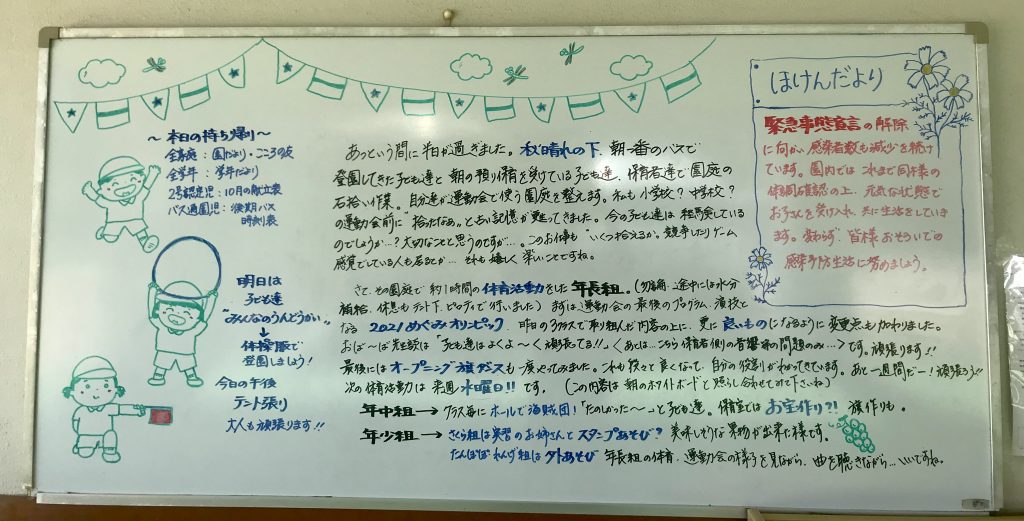 ～ 本日の持ち帰り ～
全家庭：園だより・こころの友
全学年：学年だより
2号認定児：10月の献立表
バス通園児：後期バス
時刻表
明日は
子ども達
"みんなのうんどうかい"
↓
体操服で
登園しましょう！
今日の午後
テント張り
大人も頑張ります!!
あっという間に半日が過ぎました。秋晴れの下、朝一番のバスで
登園してきた子ども達と朝の預り保育を受けている子ども達、保育者達で園庭の
石拾い作業。自分達が運動会で使う園庭を整えます。私も小学校？中学校？
の運動会前に"拾ったなぁ。"と古い記憶が甦ってきました。今の子ども達は経験している
のでしょうか…？大切なことと思うのですが…。このお仕事も"いくつ拾えるか"競争したりゲーム
感覚でしている人も居るとか… それも嬉しく楽しいことですね。
さて、その園庭で約1時間の体育活動をした年長組。(勿論、途中には水分
補給、休息もテント下、ピロティで行いました) まずは運動会の最後のプログラム、演技と
なる 2021めぐみオリンピック。昨日の3クラスで取り組んだ内容の上に、更に良いものになるように変更点も加わりました。
おば～ば先生談は「子ども達はよくよ～く頑張ってる!!」<あとは…こちら保育者側の音響等の問題のみ…>です。頑張ります!!
最後にはオープニング旗ダンスも一度やってみました。これも段々と良くなって、自分の役割がわかってきています。あと一週間だー！頑張ろう!!
次の体育活動は来週水曜日!!です。 (この内容は朝のホワイトボードと照らし合わせてみて下さいね)
年中組 → クラス毎にボールで海賊団！「たのしかった～」と子ども達。保育室ではお宝作り?! 旗作りも。
年少組 → さくら組は実習のお姉さんとスタンプあそび？ 美味しそうな果物が出来た様です。
たんぽぽ れんげ組は外あそび 年長組の体育、運動会の様子を見ながら、曲を聴きながら…いいですね。
ほけんだより
緊急事態宣言の解除
に向かい、感染者数も減少を続け
ています。園内ではこれまで同様の
体調確認の上、元気な状態で
お子さんを受け入れ、共に生活をしていき
ます。変わらず、皆様おそろいでの
感染予防生活に努めましょう。